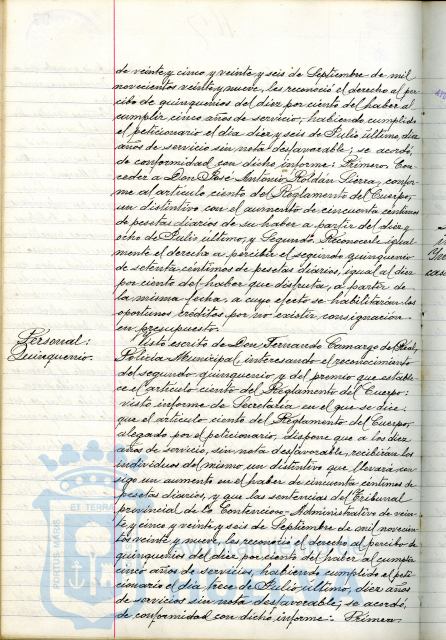 de veinte y cinco y veinte y seis de Septiembre de mil
novecientos veinte y nueve, les reconoció el derecho al per-
cibo de quinquenios del diez por ciento del haber al
cumplir cinco años de servicio; habiendo cumplido
el peticionario el día diez y seis de Julio último, diez
años de servicio sin nota desfavorable; se acordó,
de conformidad con dicho informe: Primero. Con-
ceder a Don José Antonio Roldán Sierra, confor-
me al artículo ciento del Reglamento del Cuerpo,
un distintivo con el aumento de cincuenta céntimos
de pesetas diarios de su haber a partir del diez y
ocho de Julio último; y Segundo. Reconocerle igual-
mente el derecho a percibir el segundo quinquenio
de setenta céntimos de pesetas diarios, igual al diez
por ciento del haber que disfruta, a partir de
la misma fecha, a cuyo efecto se habilitarán los
oportunos créditos por no existir consignación
en presupuesto.
Personal:
Quinquenio.
Visto escrito de Don Fernando Camargo de
Policía Municipal interesando el reconocimiento
del segundo quinquenio y del premio que estable-
ce el artículo ciento del Reglamento del Cuerpo:
visto informe de Secretaría en el que se dice:
que el artículo ciento del Reglamento del Cuerpo,
alegado por el peticionario, dispone que a los diez
años de servicio, sin nota desfavorable, recibirán los
individuos del mismo un distintivo que llevará con-
sigo un aumento en el haber de cincuenta céntimos de
pesetas diarios, y que las sentencias del Tribunal
provincial de lo Contencioso-Administrativo de vein-
te y cinco y veinte y seis de Septiembre de mil novecien-
tos veinte y nueve, les reconoció el derecho al percibo de
quinquenios del diez por ciento del haber al cumplir
cinco años de servicios, habiendo cumplido el peti-
cionario el día trece de Julio último, diez años
de servicios sin nota desfavorable; se acordó,
de conformidad con dicho informe: Primero.
ET TERRA
PORTUS MAGIS